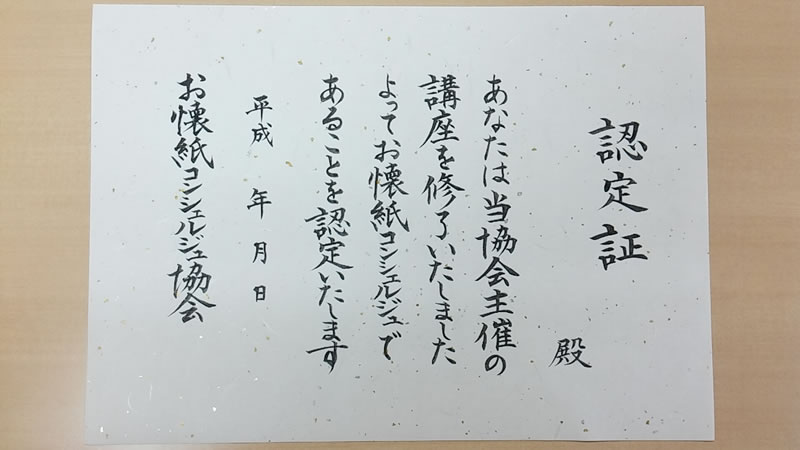 認定証
殿
あなたは当協会主催の
講座を修了いたしました
よってお懐紙コンシェルジュで
あることを認定いたします
平成　年　月　日
お懐紙コンシェルジュ協会